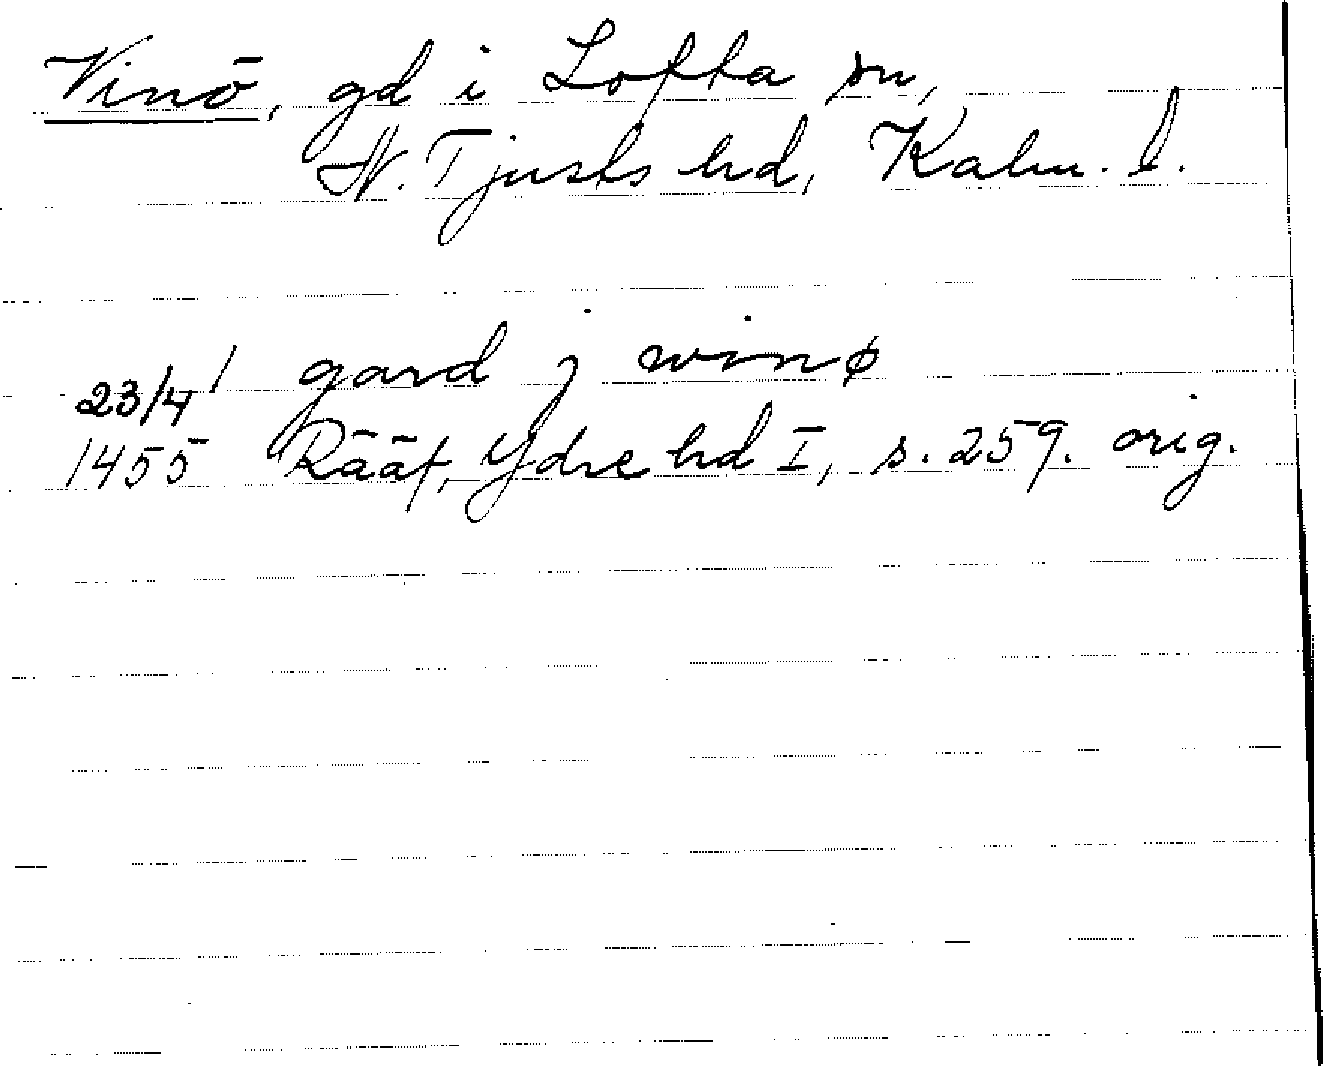 Vinö, gd i Lofta sn,
N. Tjusts hd, Kalm. l.
gard j winø
23/4
1455 Rääf, Ydre hd I, s. 259. orig.